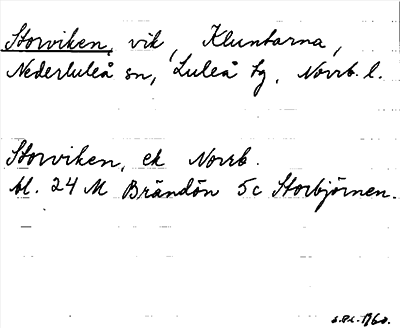 Storviken, vik, Kluntarna,
Nederluleå sn, Luleå tg, Norrb. l.
Storviken, ek Norrb.
bl. 24 M Brändön 5c Storbjörnen.
1760.